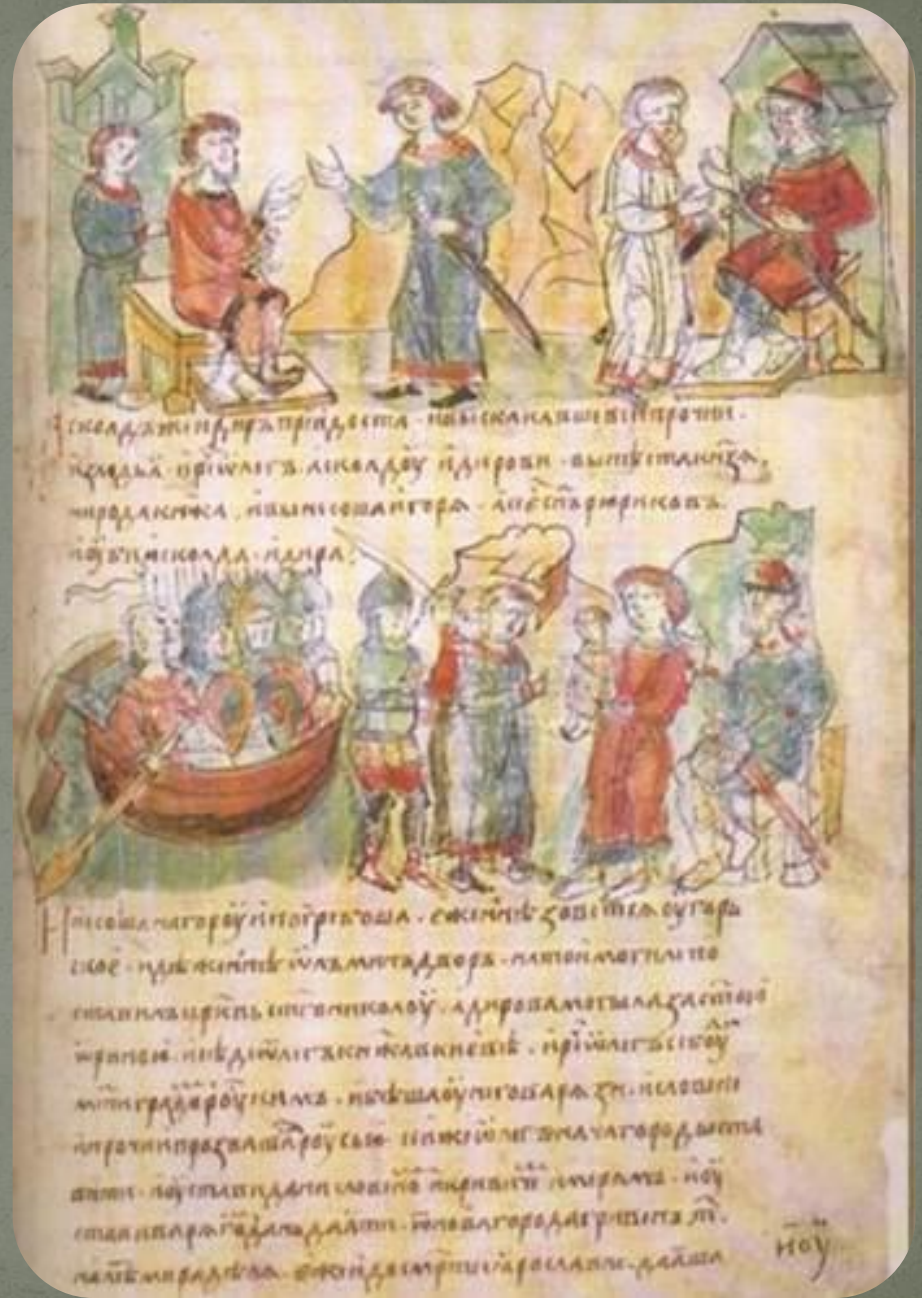 асколдъ же и диръ придоста · и выскакавше вси прочии ·
излодьꙗ · и рⷱ҇е ѿлегъ асколдоу и дирови · вы нѣста кн҃зѧ ·
ни рода кнжа · и вынесоша игорѧ · а се сн҃ъ рюриковъ ·
асколда · и дира :
И несоша на гороу и погребоша · еже нн҃ѣ зоветсѧ оугорь
ское · идѣже нн҃ѣ дворъ · на тои могилѣ по
ставилъ цр҃квь ст҃го николоу · а дирова могыла за ст҃ою
ѡриною · ѿлегъ кнжа в киевѣ · и рⷱ҇е ѿлегъ се боуⷣ
мт҃и градоⷨ роускимъ · и бѣша оу него варѧзи · и словени
и прочии прозвашасѧ роусью · ѿлегъ нача городы ста
вити · и оустави дани словеноⷨ и кривичеⷨ и мерѧмъ · и оу
стави варѧгоⷨ дань даꙗти · ѿ новагорода гривенъ т҃ ·
на лѣⷮ мира дѣлѧ · еже и до смр҃ти ꙗрославлѧ даꙗша